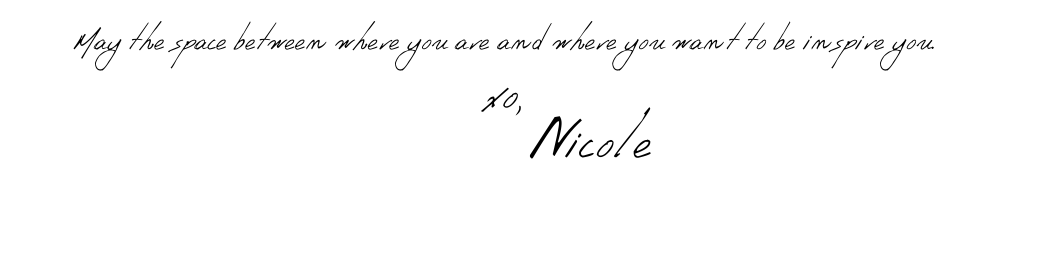 May the space between where you are and where you want to be inspire you.
xo,
Nicole